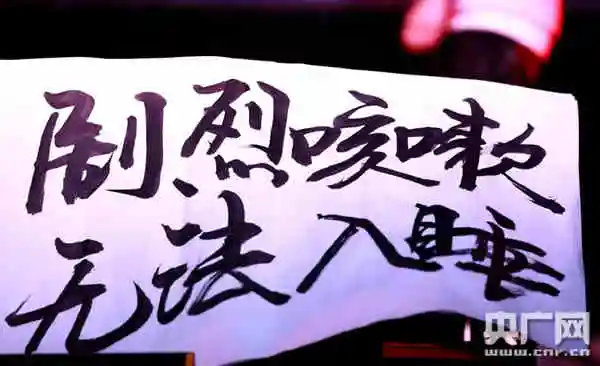 剧烈咳嗽
无法入睡
央广网
www.cnr.cn